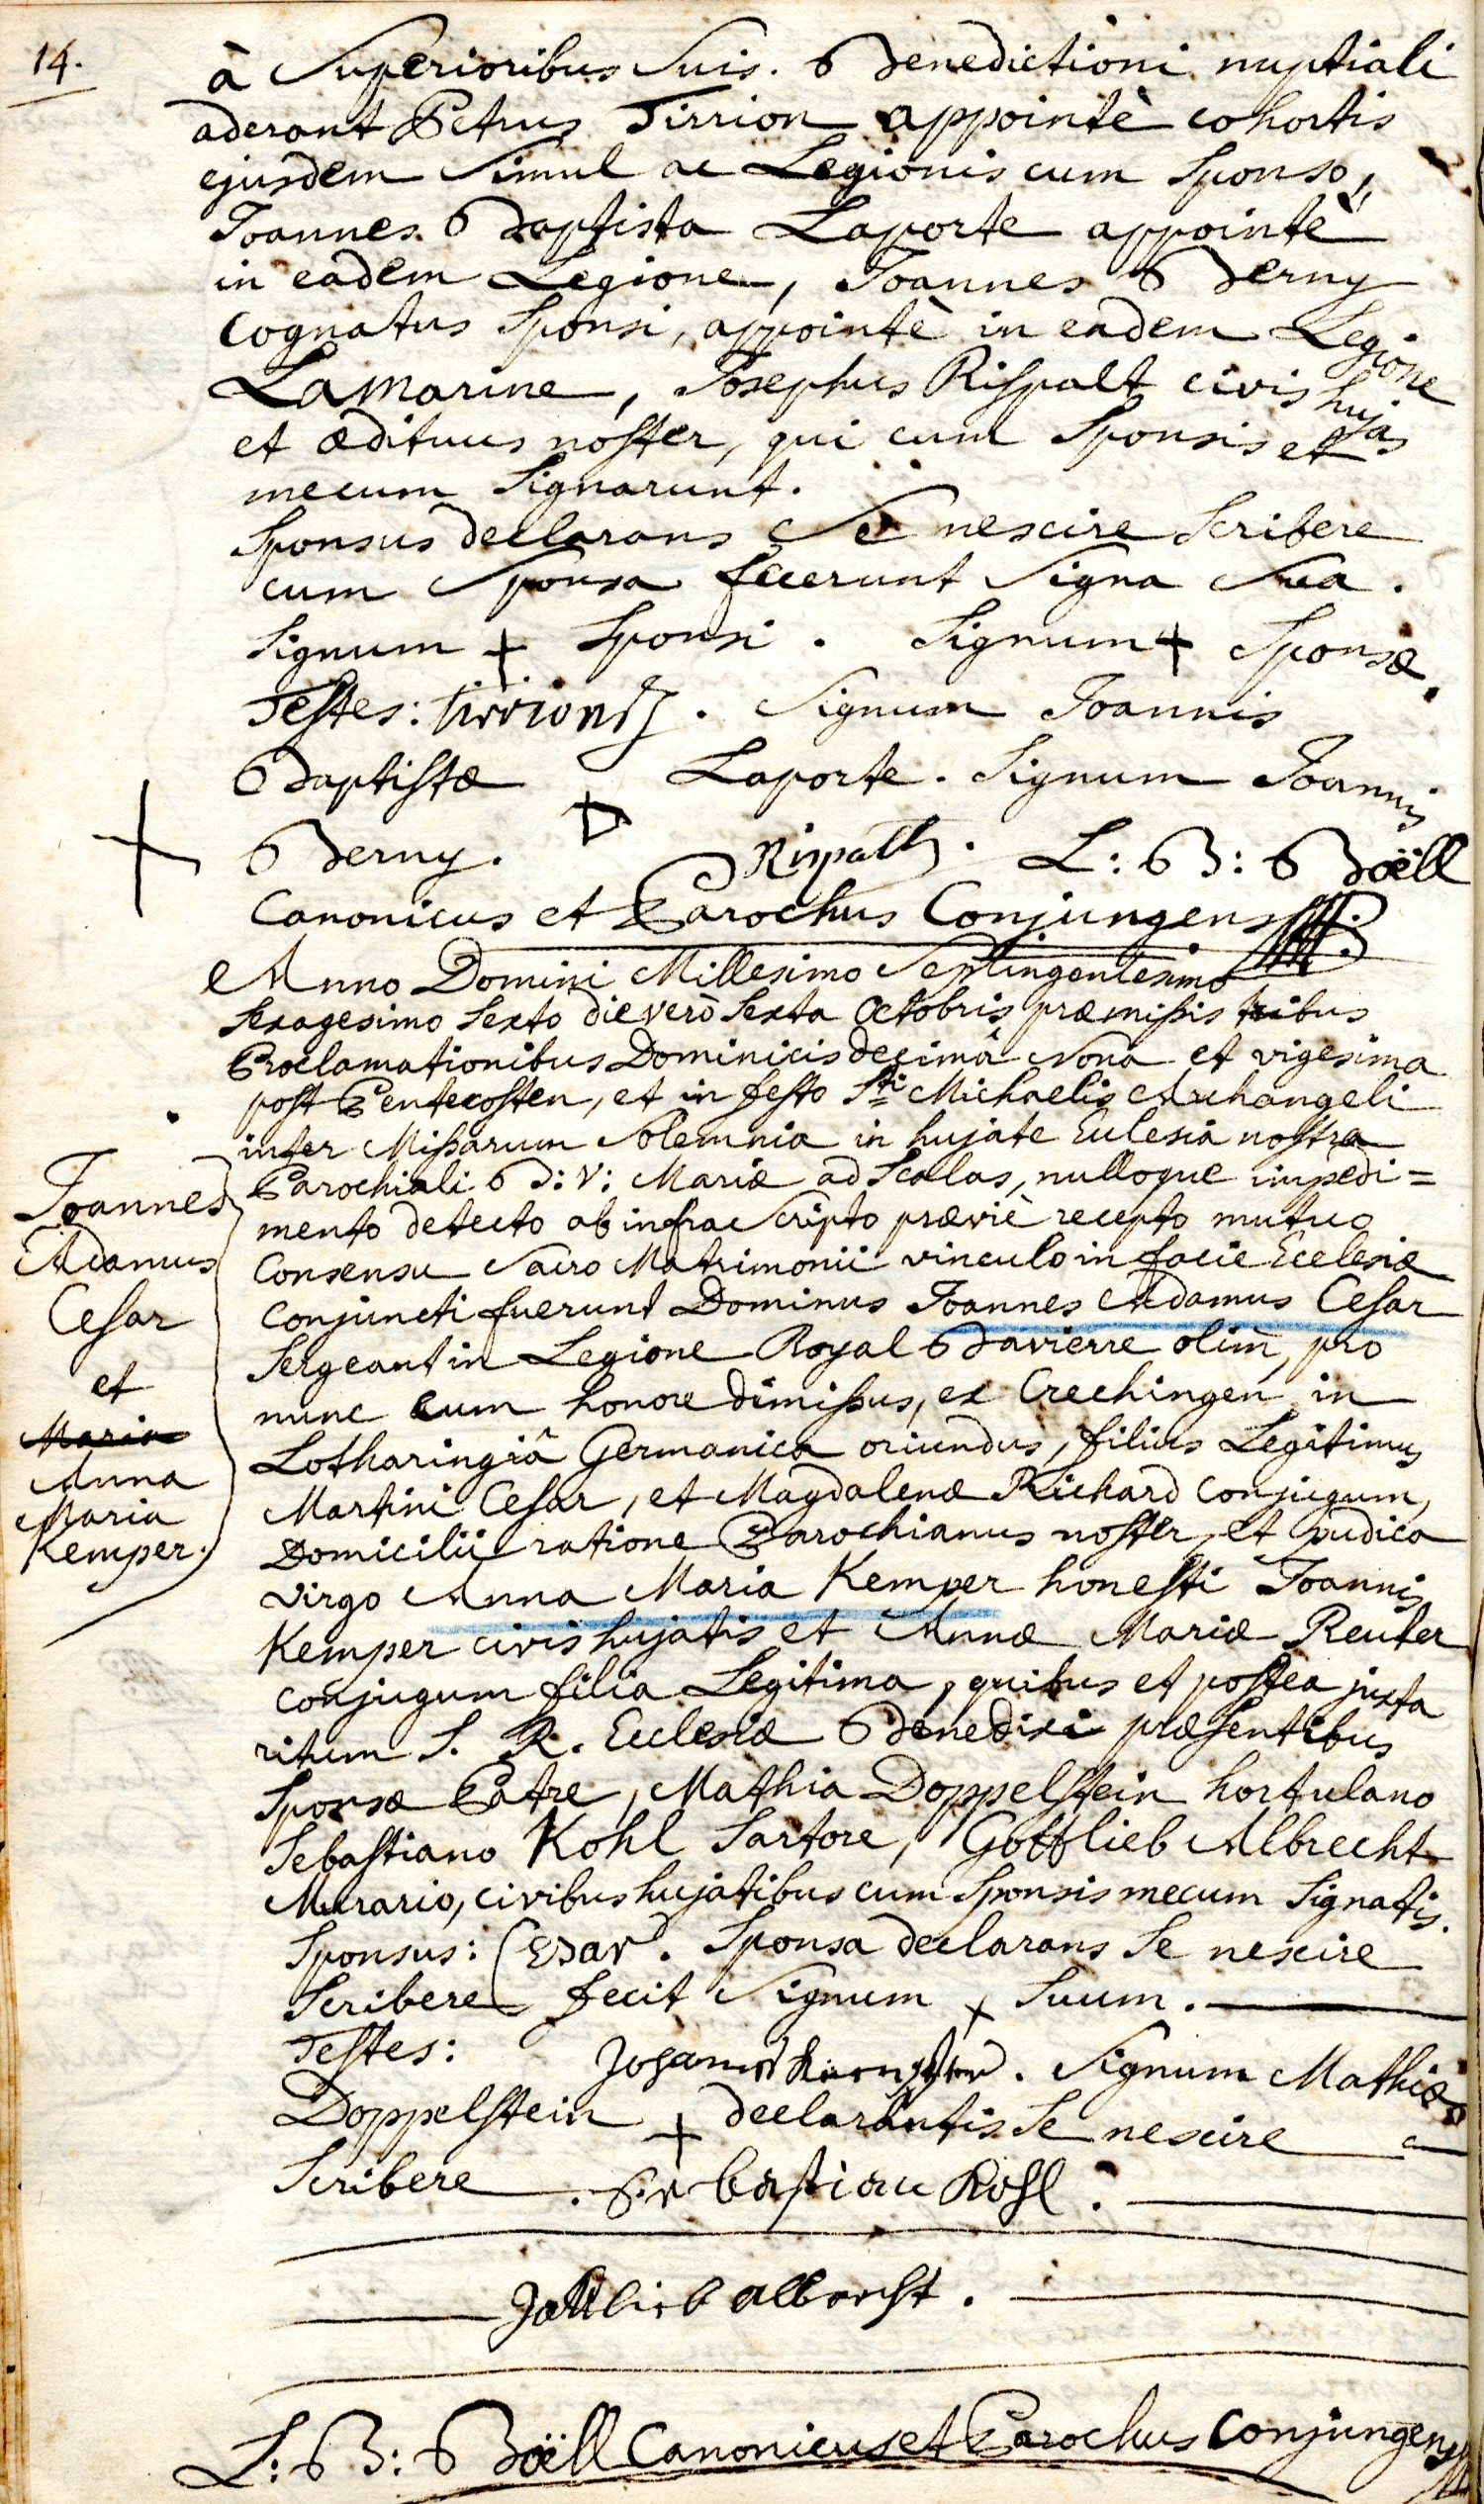 14.
à Superioribus Suis. Benedictioni nuptiali
aderant Petrus Tirrion appointè cohortis
ejusdem Simul ac Legionis cum Sponso,
Joannes Baptista Laporte appointè
in eadem Legione, Joannes Berny
Cognatus Sponsi, appointè in eadem Legione
LaMarine, Josephus Rispalt civis hujas
et ædituus noster, qui cum Sponsis et
mecum Signarunt.
Sponsus declarans Se nescire Scribere
cum Sponsa fecerunt Signa Sua.
Signum + Sponsi. Signum + Sponsæ.
Testes: tirrion. Signum Joannis
Baptistæ Laporte. Signum Joannis
Berny. Rispalt. L: B: Boëll
Canonicus et Parochus Conjungens
Anno Domini Millesimo Septingentesimo
Sexagesimo Sexto die verò Sexta Octobris præmissis tribus
Proclamationibus Dominicis decimâ Nona et vigesima
post Pentecosten, et in festo Sti Michaelis Archangeli
inter Missarum Solemnia in hujate Ecclesiâ nostra
Parochiali B: V: Mariæ ad Scalas, nulloque impedi=
mento detecto ab infra Scripto præviè recepto mutuo
Consensu Sacro Matrimonii vinculo in facie Ecclesiæ
Conjuncti fuerunt Dominus Joannes Adamus Cesar
Sergeant in Legione Royal Bavierre olim, pro
nunc cum honore dimissus, ex Crechingen in
Lotharingiâ Germanica oriundus, filius Legitimus
Martini Cesar, et Magdalenæ Richard Conjugum,
Domicilii ratione Parochianus noster, et pudica
virgo Anna Maria Kemper honesti Joannis
Kemper civis hujatis et Annæ Mariæ Reuter
conjugum filia Legitima, quibus et postea juxta
ritum S. R. Ecclesiæ Benedixi præsentibus
Sponsæ Patre, Mathia Doppelstein hortulano
Sebastiano Kohl Sartore, Gottlieb Albrecht
Murario, civibus hujatibus cum Sponsis mecum Signatis.
Sponsus: Cesar. Sponsa declarans Se nescire
Scribere fecit Signum + Suum.
Testes: Johannes Kemper. Signum Mathiæ
Doppelstein + declarantis Se nescire
Scribere. Sebastian Kohl.
Gottlieb albrecht.
L: B: Boëll Canonicus et Parochus Conjungens
Joannes
Adamus
Cesar
et
Maria
Anna
Maria
Kemper.